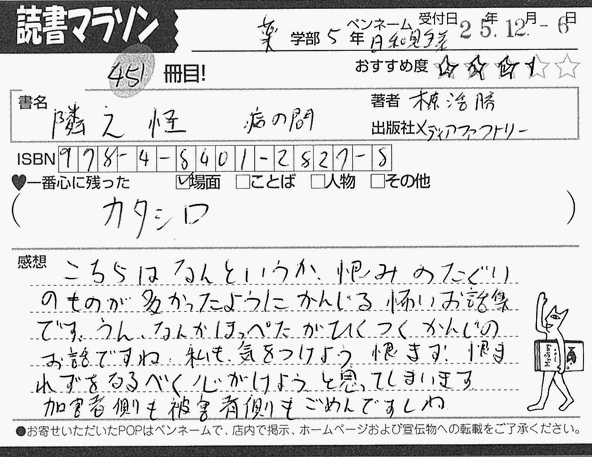 読書マラソン
薬 学部 5 年 ペンネーム 受付日 25年12月-6日
451 冊目!
おすすめ度
書名 隣之怪 病の間
著者 木原浩勝
出版社 メディアファクトリー
ISBN 978-4-8401-2827-8
♥一番心に残った ☑場面 □ことば □人物 □その他
(カタシロ)
感想
こちらはなんというか、恨みのたぐい
のものが多かったようにかんじる怖いお話集
です。うん、なんかほっぺたがひくつくかんじの
お話ですね。私も、気をつけよう 恨まず、恨ま
れずをなるべく心がけようと思ってしまいます
加害者側も被害者側もごめんですしね
●お寄せいただいたPOPはペンネームで、店内で掲示、ホームページおよび宣伝物への転載をご了承ください。